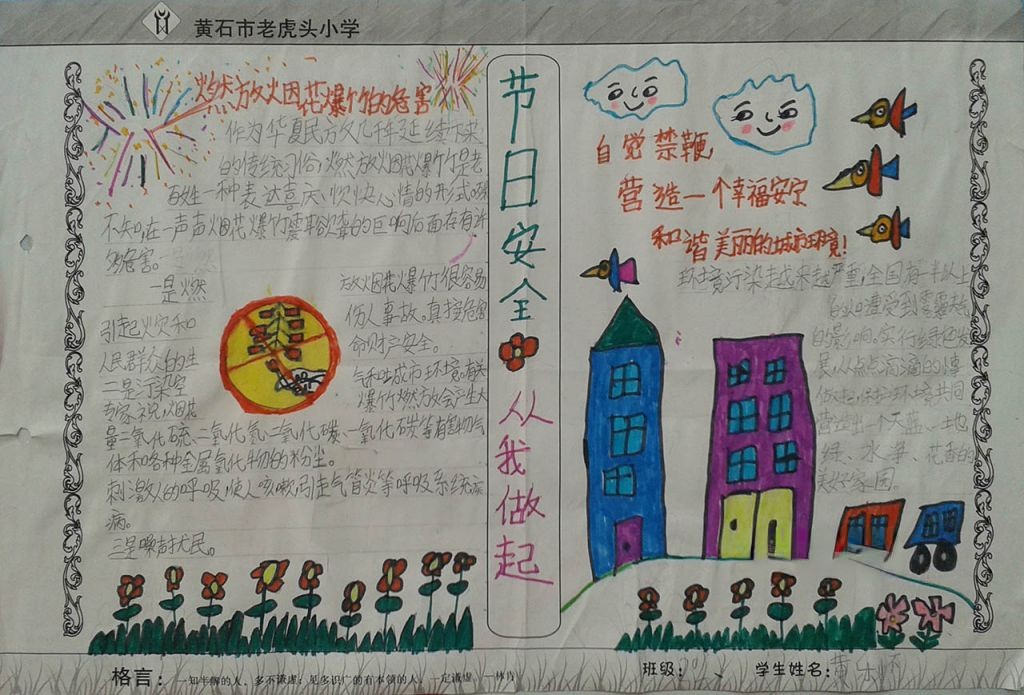 黄石市老虎头小学
燃放烟花爆竹的危害
作为华夏民族几千年延续下来
的传统习俗,燃放烟花爆竹是老
百姓一种表达喜庆、欢快心情的形式。殊
不知,在一声声烟花爆竹震耳欲聋的巨响后面存在有许
多危害。
一是燃放烟花爆竹很容易
引起火灾和伤人事故。直接危害
人民群众的生命财产安全。
二是污染空气和
专家说,烟花爆竹燃放会产生大
量二氧化硫、二氧化氮、二氧化碳、一氧化碳等有害的气
体和各种金属氧化物的粉尘。
刺激人的呼吸,使人咳嗽,引起气管炎等呼吸系统疾
病。
三是噪声扰民。
节日安全
从我做起
自觉禁鞭
营造一个幸福安宁
和谐美丽的城市环境!
环境污染越来越严重,全国有一半以上
遭受到雾霾
的影响。实行绿色发
展,从点点滴滴的
做起,保护环境共同
营造出一个天蓝、土也
绿、水净、花香的
美好家园。
格言:一知半解的人,多不谦虚;见多识广的有本领的人,一定谦虚。
班级:
学生姓名: